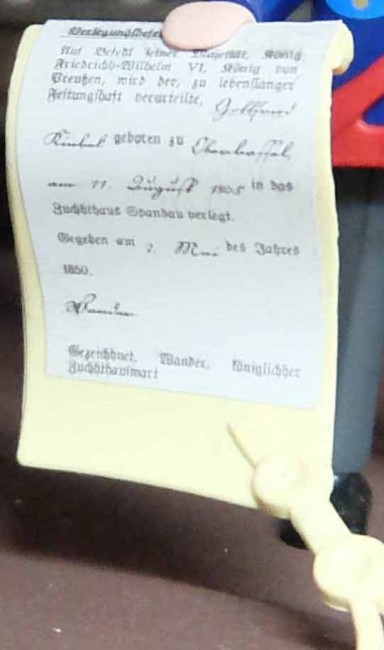 Verlegungsbefehl
Auf Befehl seiner Majestät, König
Friedrichh-Wilhelm VI, König von
Preußen, wird der, zu lebenslanger
Festungshaft verurteilte, Gottfried
Kinkel geboren zu Oberkassel,
am 11. August 1805 in das
Zuchthaus Spandau verlegt.
Gegeben am 2. Mai des Jahres
1850.
Wander
Gezeichhnet, Wander, königlichher
Zuchhthauswart